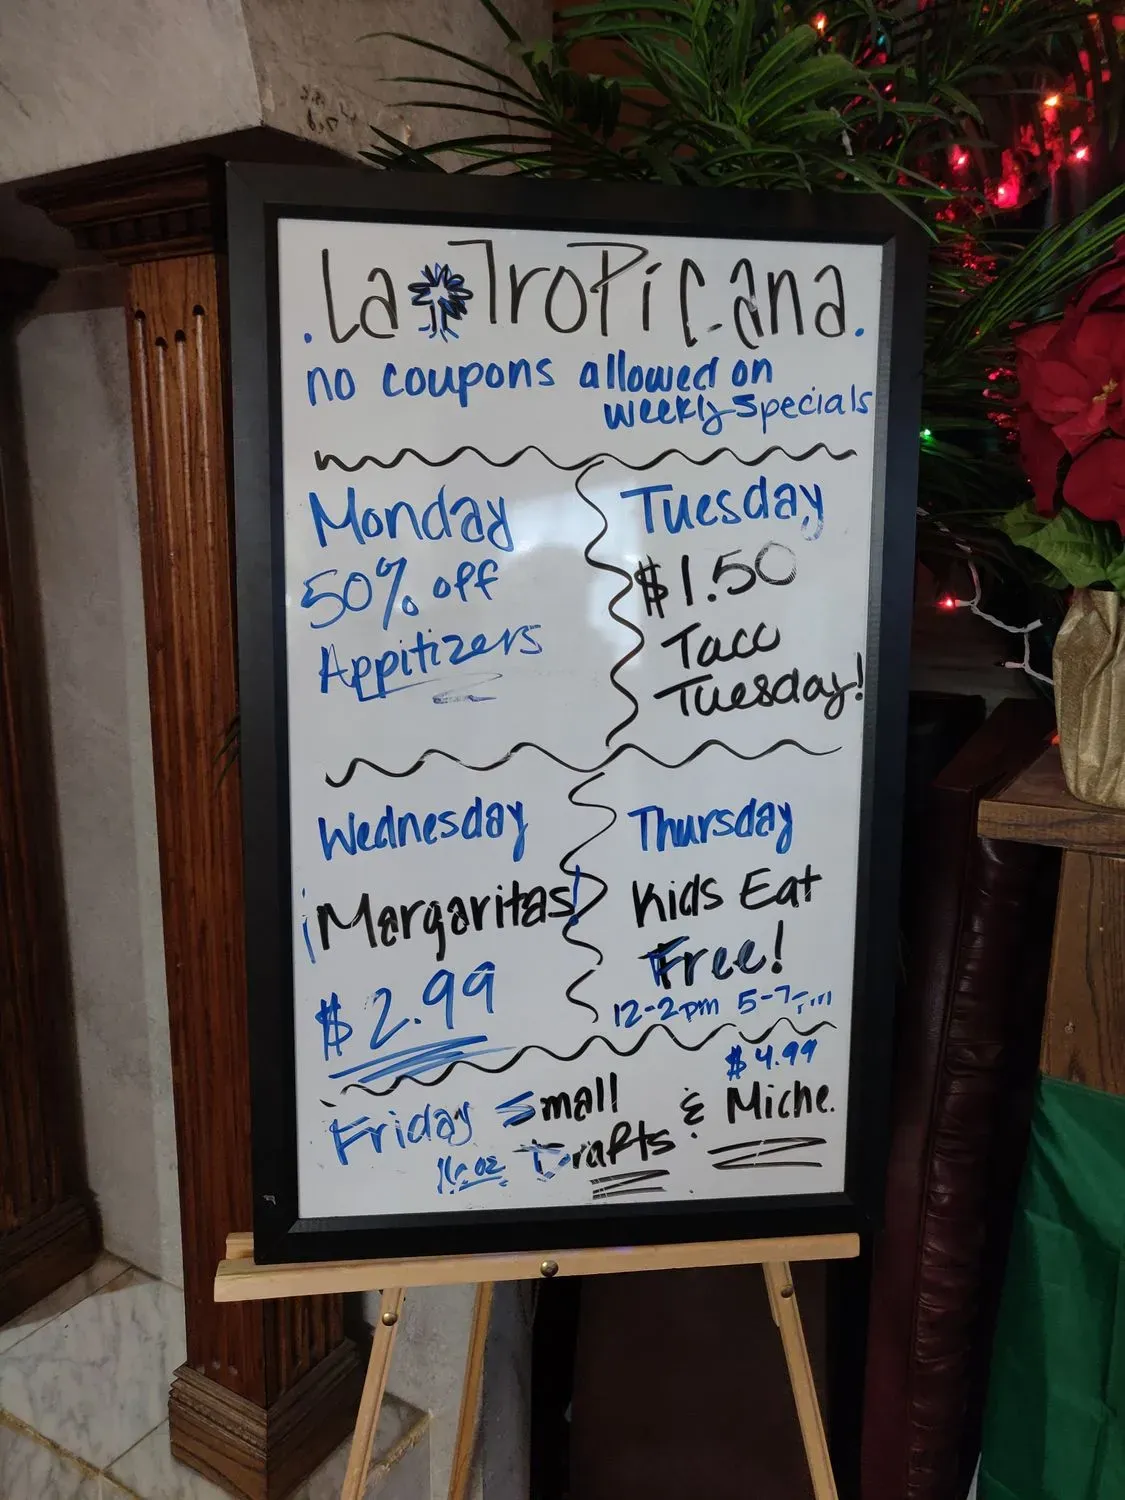 La Tropicana
no coupons allowed on
weekly specials
Monday
50% off
Appitizers
Tuesday
$1.50
Taco
Tuesday!
Wednesday
¡Margaritas!
$2.99
Thursday
Kids Eat
Free!
12-2pm 5-7pm
Friday Small
16oz Drafts
$4.99
& Miche.